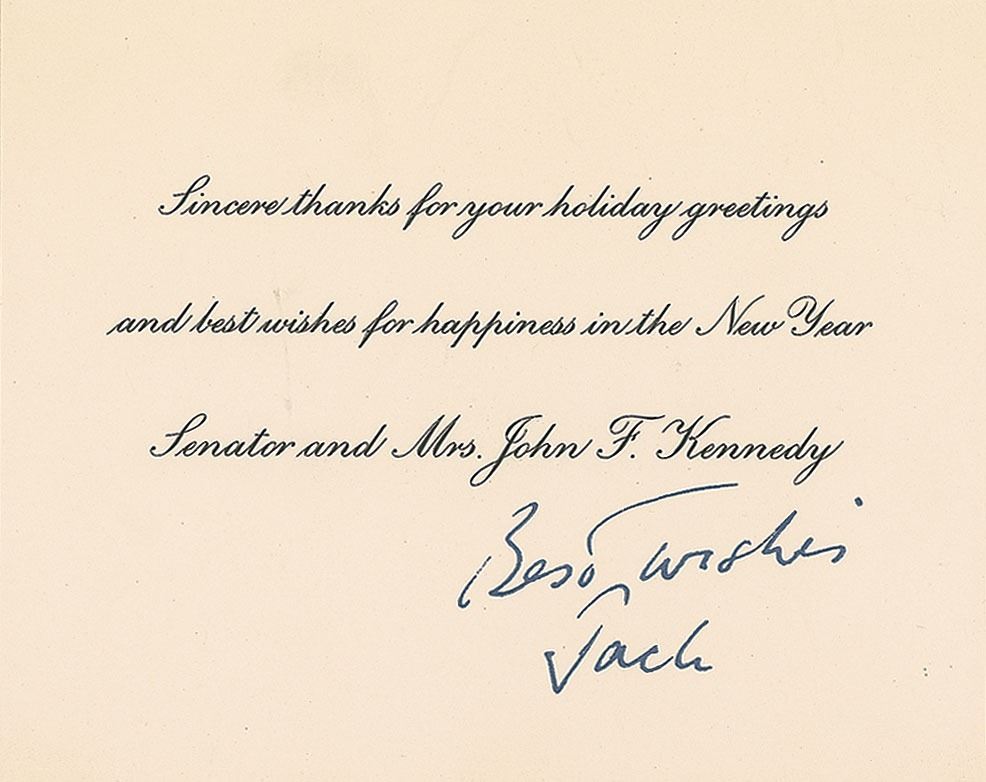 Sincere thanks for your holiday greetings
and best wishes for happiness in the New Year
Senator and Mrs. John F. Kennedy
Best wishes
Jack